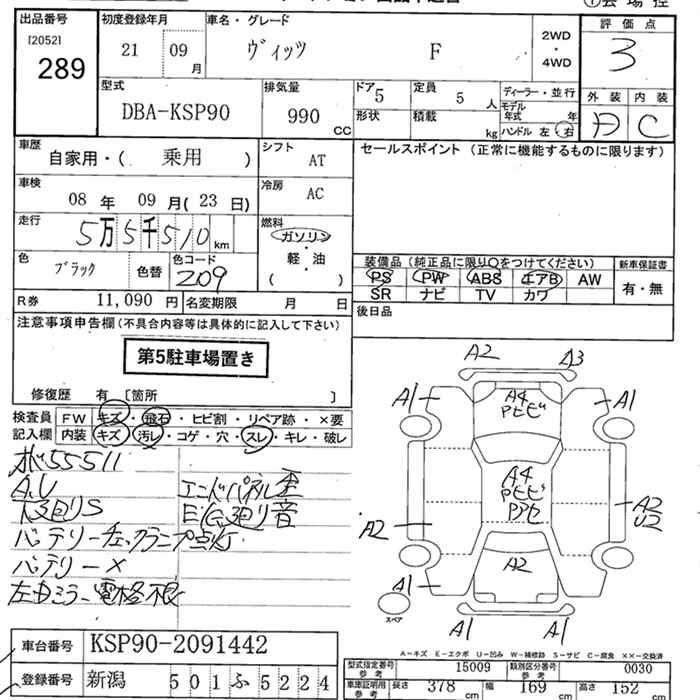 出品番号 初度登録年月 車名・グレード 評価点
[2052] 289 21 09 月 ヴィッツ F 2WD・4WD 3
型式 排気量 ドア 5 定員 5 人 ディーラー・並行 外装 内装
DBA-KSP90 990 CC 形状 積載 kg モデル年式 年 ハンドル 左・右 A C
車歴 自家用・( 乗用 ) シフト AT セールスポイント (正常に機能するものに限ります)
車検 08 年 09 月( 23 日) 冷房 AC
走行 5万5千510 km 燃料 ガソリン・軽・油 ( )
色 ブラック 色替 色コード 209 装備品 (純正品に限り○をつけてください) 新車保証書
PS PW ABS エアB AW 有・無
SR ナビ TV カワ
R券 11,090 円 名変期限 月 日 後日品
注意事項申告欄 (不具合内容等は具体的に記入して下さい)
第5駐車場置き
修復歴 有 [箇所 ]
検査員 FW キズ・飛石・ヒビ割・リペア跡・×要
記入欄 内装 キズ・汚レ・コゲ・穴・スレ・キレ・破レ
55511
A.U エンドパネル歪
下廻りS E/G廻り音
バッテリーチェックランプ点灯
バッテリー×
左Dミラー電格不良
A2 A3
A1 A4 A1
A4
A2 A2
U2
A2
A1
スペア A1 A1
A-キズ E-エクボ U-凹み W-補修跡 S-サビ C-腐食 ××-交換済
車台番号 KSP90-2091442
登録番号 新潟 501 ふ 5224
型式指定番号 参考 15009 類別区分番号 参考 0030
車庫証明用 参考 長さ 378 cm 幅 169 cm 高さ 152 cm